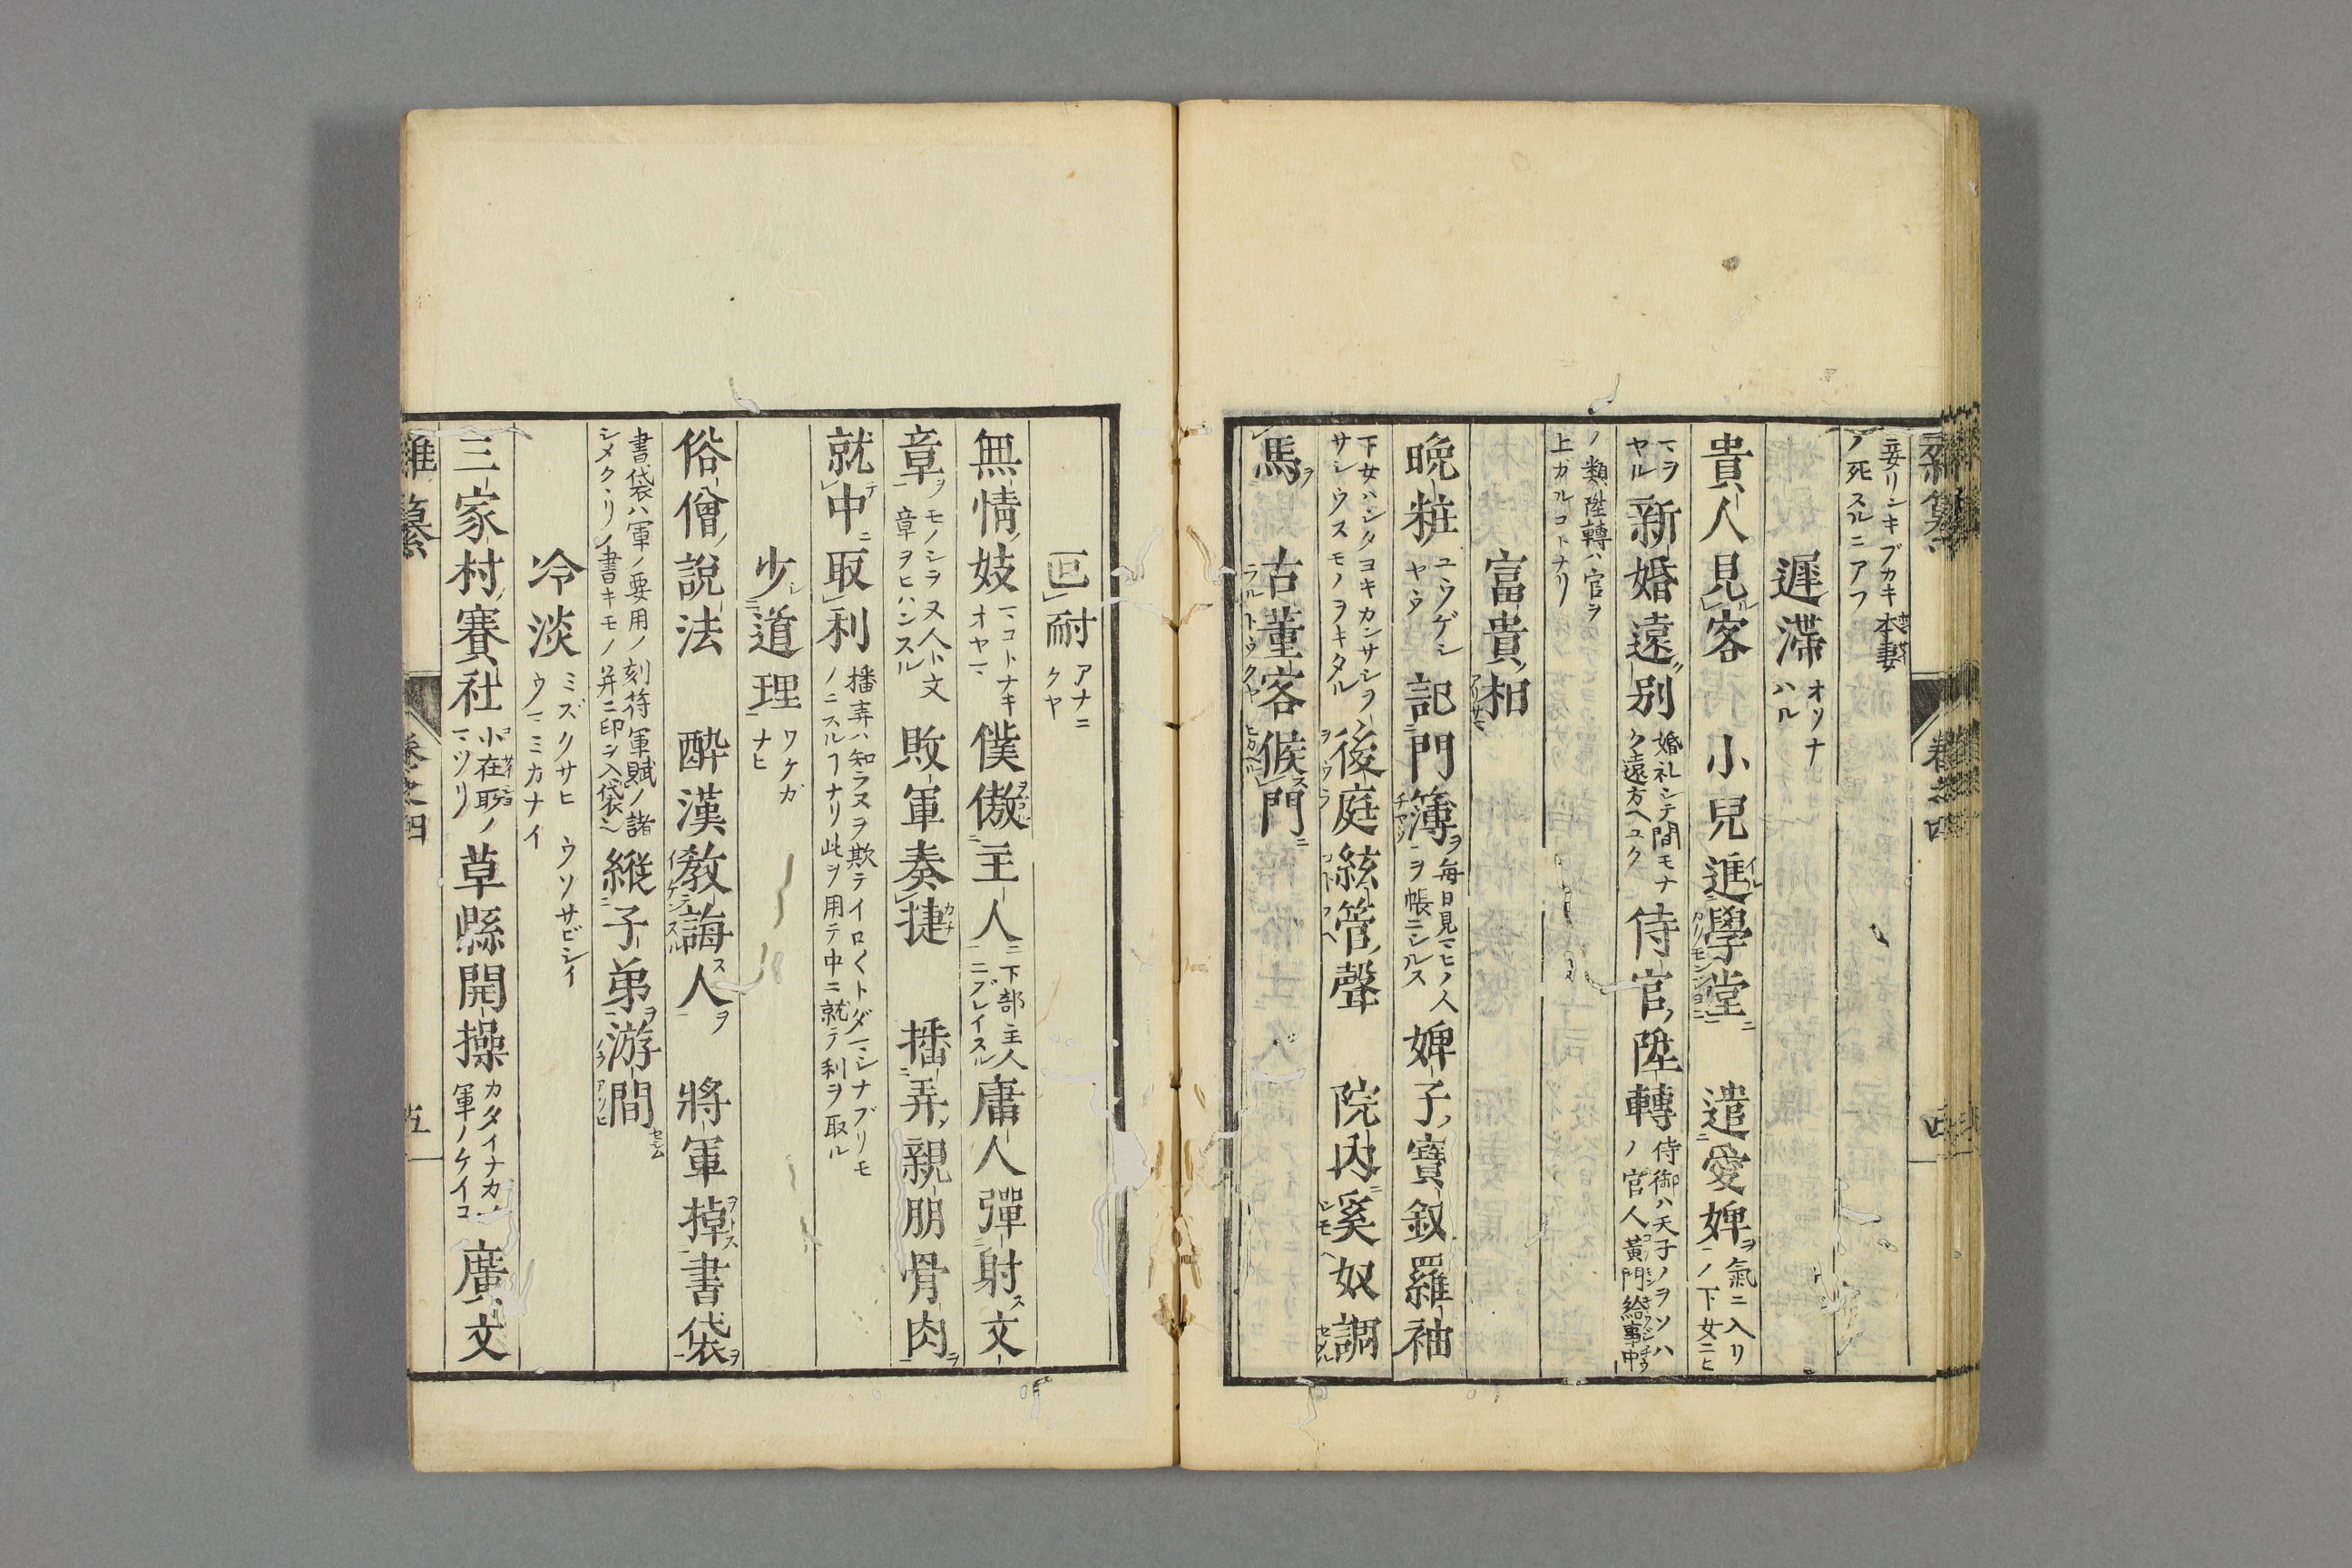 妾リンキブカキ本妻
ノ死スルニアフ
遲滯 オソナ
ハル
貴人見客 小兒進學堂 遣愛婢 氣ニ入リ
ノ下女ニヒ
マヲ
ヤル 新婚遠別 婚礼シテ間モナ
ク遠方ヘユク 侍官陞轉 侍御ハ天子ノヲソハ
ノ官人黄門給事中
ノ類陞轉ハ官ヲ
上ガルコトナリ
富貴相 アリサマ
晩粧 ユウゲシ
ヤウ 記門簿 毎日見マヒノ人
ヲ帳ニシルス 婢子寶釵羅袖
下女ハシタヨキカンサシヲ
サシウスモノヲキタル 後庭絃管聲 院内奚奴調
馬 古董客候門
叵耐 アナニ
クヤ
無情妓 マコトナキ
オヤマ 僕傲主人 下部主人
ニブレイスル 庸人彈射文
章 モノシラヌ人ト文
章ヲヒハンスル 敗軍奏捷 播弄親朋骨肉
就中取利 播弄ハ知ラヌヲ欺テイロ〱トダマシナブリモ
ノニスルヿナリ此ヲ用テ中ニ就テ利ヲ取ル
少道理 ワケガ
ナヒ
俗僧説法 醉漢教誨人 將軍掉書袋
書袋ハ軍ノ要用ノ刻符軍賦ノ諸
シメクヽリノ書キモノ并ニ印ヲ入袋 縱子弟游間
冷淡 ミズクサヒ ウソサビシイ
ウマミカナイ
三家村賽社 小在所ノ
マツリ 草縣開操 カタイナカノ
軍ノケイコ 廣文
雜纂 卷之四 五